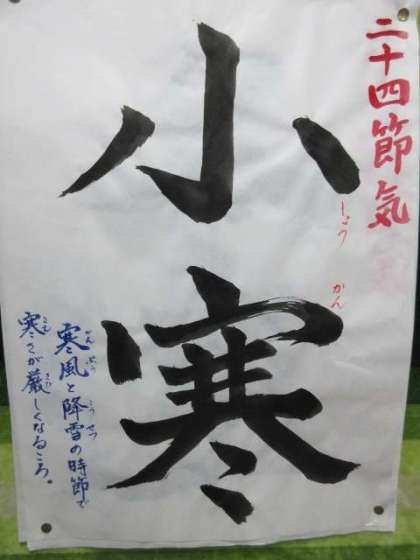 二十四節気
小寒
しょう
かん
寒風と降雪の時節で
かん ぷう
こう せつ
寒さが厳しくなるころ。
さむ
きび